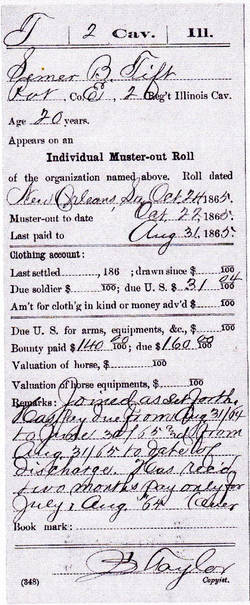 T 2 Cav. Ill.
B. Tift
Pvt, Co. E, 2 Reg't Illinois Cav.
Age 20 years.
Appears on an
Individual Muster-out Roll
of the organization named above. Roll dated
New Orleans, La, Oct 24, 1865.
Muster-out to date Oct. 22, 1865.
Last paid to Aug 31, 1865.
Clothing account:
Last settled, 186 ; drawn since $ 100
Due soldier $ 100; due U.S. $ 31 04/100
Am't for cloth'g in kind or money adv'd $ 100
Due U.S. for arms, equipments, &c., $ 100
Bounty paid $ 140 00/100; due $ 160 00/100
Valuation of horse, $ 100
Valuation of horse equipments, $ 100
Remarks: Joined as set forth.
Has pay due from Aug 31/64
to June 30/65 & from
Aug. 31/65 to date of
discharge. Has rec'd
two months pay only for
July & Aug "65"
Book mark:
Taylor
(348) Copyist.